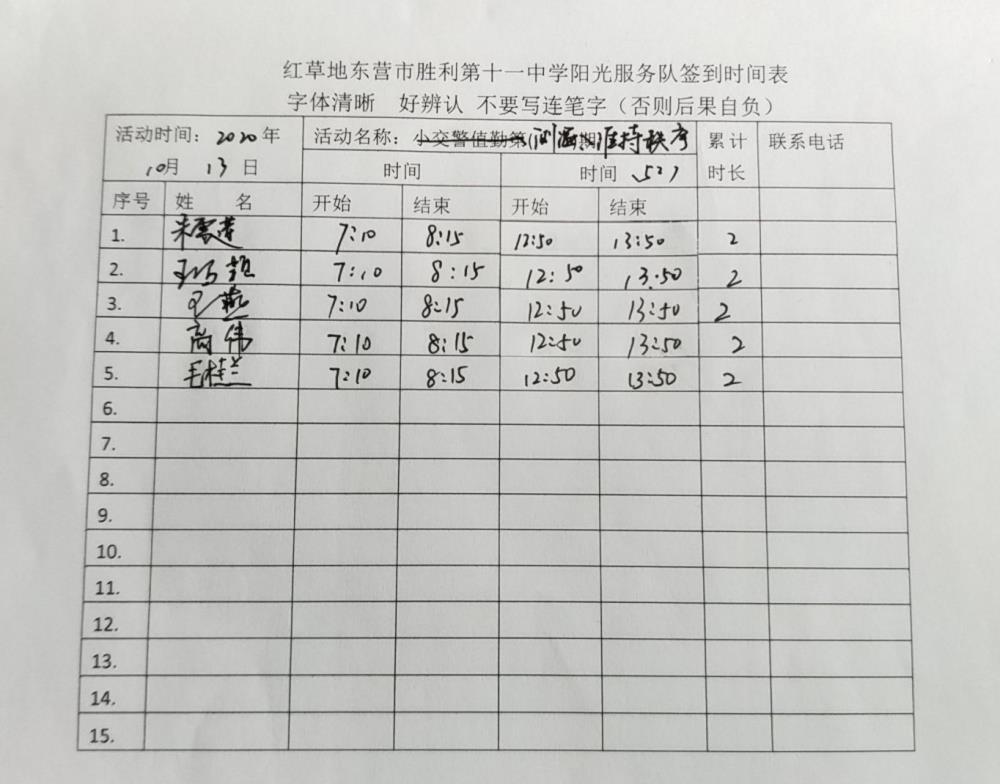 红草地东营市胜利第十一中学阳光服务队签到时间表
字体清晰 好辨认 不要写连笔字（否则后果自负）
活动时间：2020年 活动名称：小交警值勤第( 期)维持秩序 累计 联系电话
10月 13日 时间 时间 时长
序号 姓 名 开始 结束 开始 结束
1. 7:10 8:15 12:50 13:50 2
2. 7:10 8:15 12:50 13:50 2
3. 7:10 8:15 12:50 13:50 2
4. 高伟 7:10 8:15 12:50 13:50 2
5. 毛桂兰 7:10 8:15 12:50 13:50 2
6.
7.
8.
9.
10.
11.
12.
13.
14.
15.